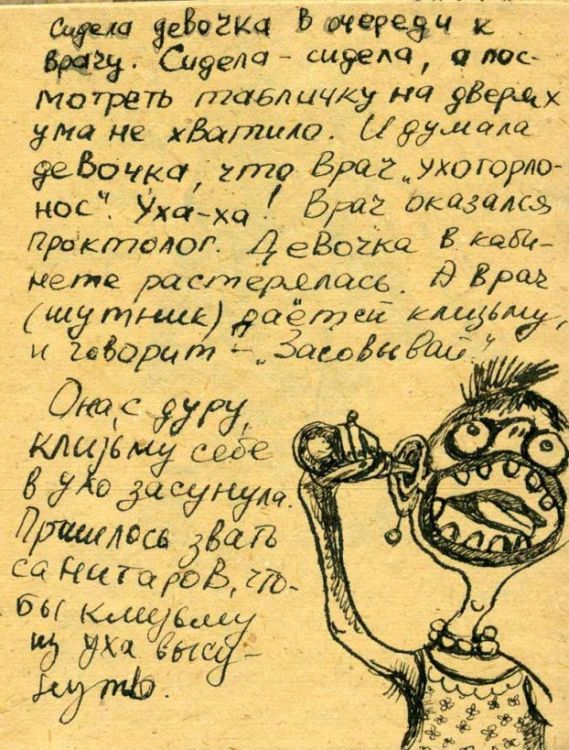 Сидела девочка в очереди к
врачу. Сидела - сидела, а пос-
мотреть табличку на дверях
ума не хватило. И думала
девочка, что врач „ухогорло-
нос". Уха-ха! Врач оказался
проктолог. Девочка в каби-
нете растерялась. А врач
(шутник) даёт ей клизьму,
и говорит - „Засовывай".
Она, с дуру,
клизьму себе
в ухо засунула.
Пришлось звать
санитаров, что-
бы клизьму
из уха высу-
нуть.